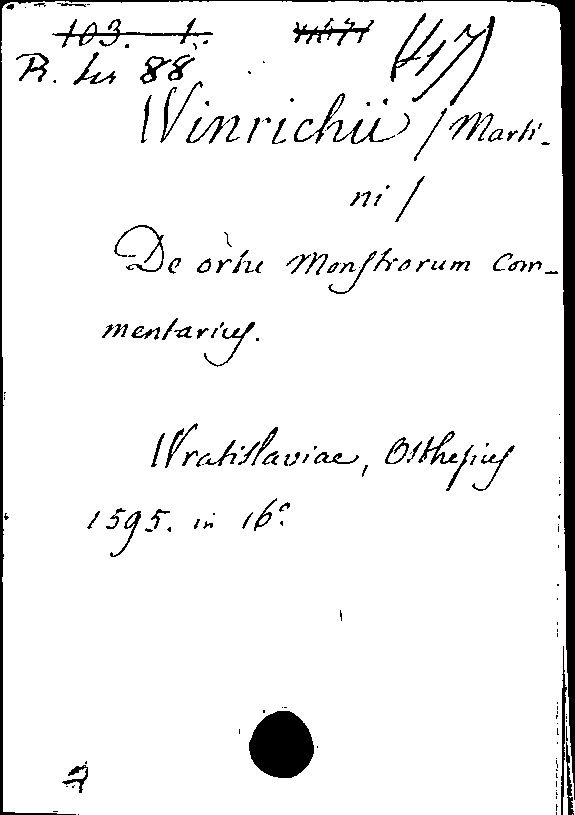 103. 1.
R. bis 88
(47)
Winrichii / Marti-
ni /
De ortu Monstrorum Com-
mentarius.
Wratislaviae, Osthesius
1595. in 16°